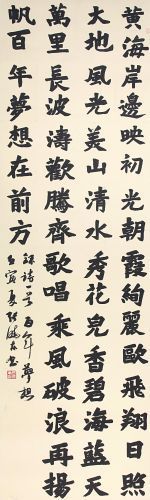 黄海岸邊映初光朝霞絢麗歐飛翔四照
大地風光美山清水秀花兒香碧海藍天
萬里長波濤歡騰齊歌唱乘風破浪再揚
帆百年夢想在前方
錄詩 百年夢想
壬寅夏